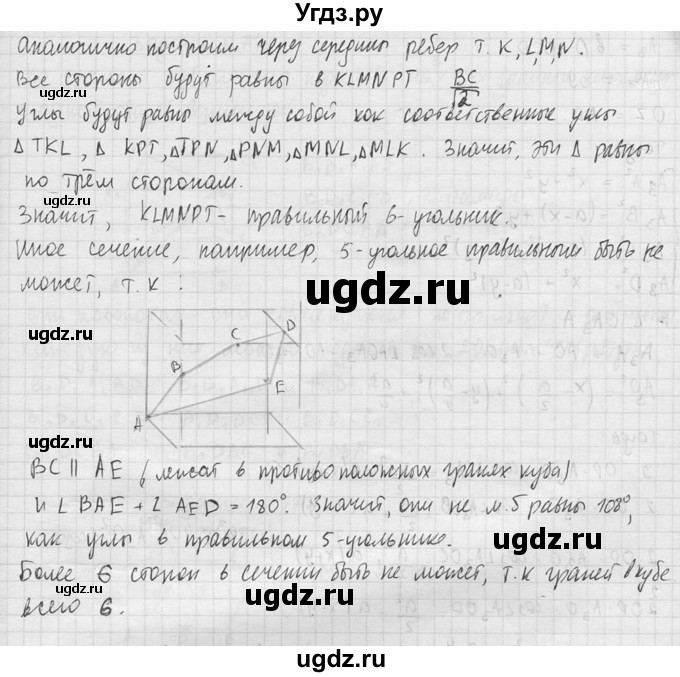 Угдз.ру
Аналогично построим через середины ребер т. K, L, M, N.
Все стороны будут равны в KLMNPT BC/√2
Углы будут равны между собой как соответственные углы
Δ TKL, Δ KPT, Δ TPN, Δ PNM, Δ MNL, Δ MLK. Значит, эти Δ равны
по трём сторонам.
Значит, KLMNPT - правильный 6-угольник.
Иное сечение, например, 5-угольное правильным быть не
может, т.к :
ugdz.ru
ugdz.ru
ugdz.ru
ugdz.ru
A B C D E
ugdz.ru
ugdz.ru
BC || AE (лежат в противоположных гранях куба)
и ∠ BAE + ∠ AED = 180°. Значит, они не м.б равны 108°,
ugdz.ru
как углы в правильном 5-угольнике.
ugdz.ru
Более 6 сторон в сечении быть не может, т.к граней в кубе
всего 6.
ugdz.ru
ugdz.ru